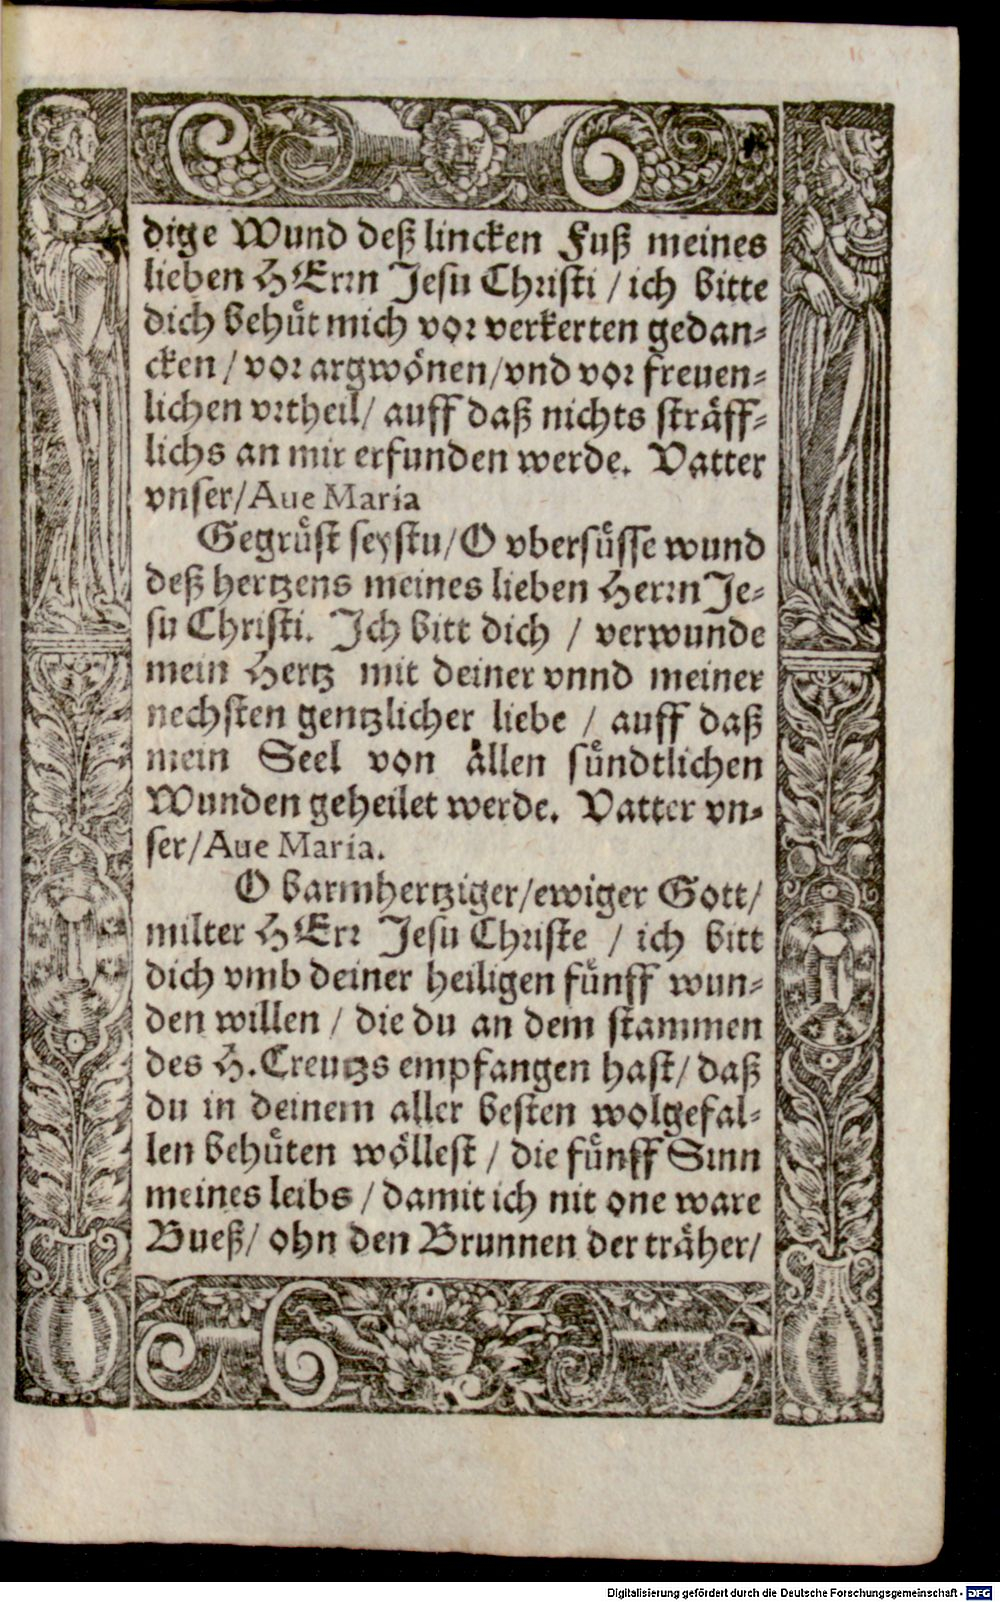 dige Wund deß lincken Fuß meines
lieben HErrn Jesu Christi / ich bitte
dich behuͤt mich vor verkerten gedan-
cken / vor argwoͤnen / vnd vor freuen-
lichen vrtheil / auff daß nichts straͤff-
lichs an mir erfunden werde. Vatter
vnser / Aue Maria
Gegruͤst seystu / O vbersuͤsse wund
deß hertzens meines lieben Herrn Je-
su Christi. Ich bitt dich / verwunde
mein Hertz mit deiner vnnd meiner
nechsten gentzlicher liebe / auff daß
mein Seel von aͤllen suͤndtlichen
Wunden geheilet werde. Vatter vn-
ser / Aue Maria.
O barmhertziger / ewiger Gott /
milter HErr Jesu Christe / ich bitt
dich vmb deiner heiligen fuͤnff wun-
den willen / die du an dem stammen
des H. Creutzs empfangen hast / daß
du in deinem aller besten wolgefal-
len behuͤten woͤllest / die fuͤnff Sinn
meines leibs / damit ich nit one ware
Bueß / ohn den Brunnen der traͤher /
Digitalisierung gefördert durch die Deutsche Forschungsgemeinschaft - DFG